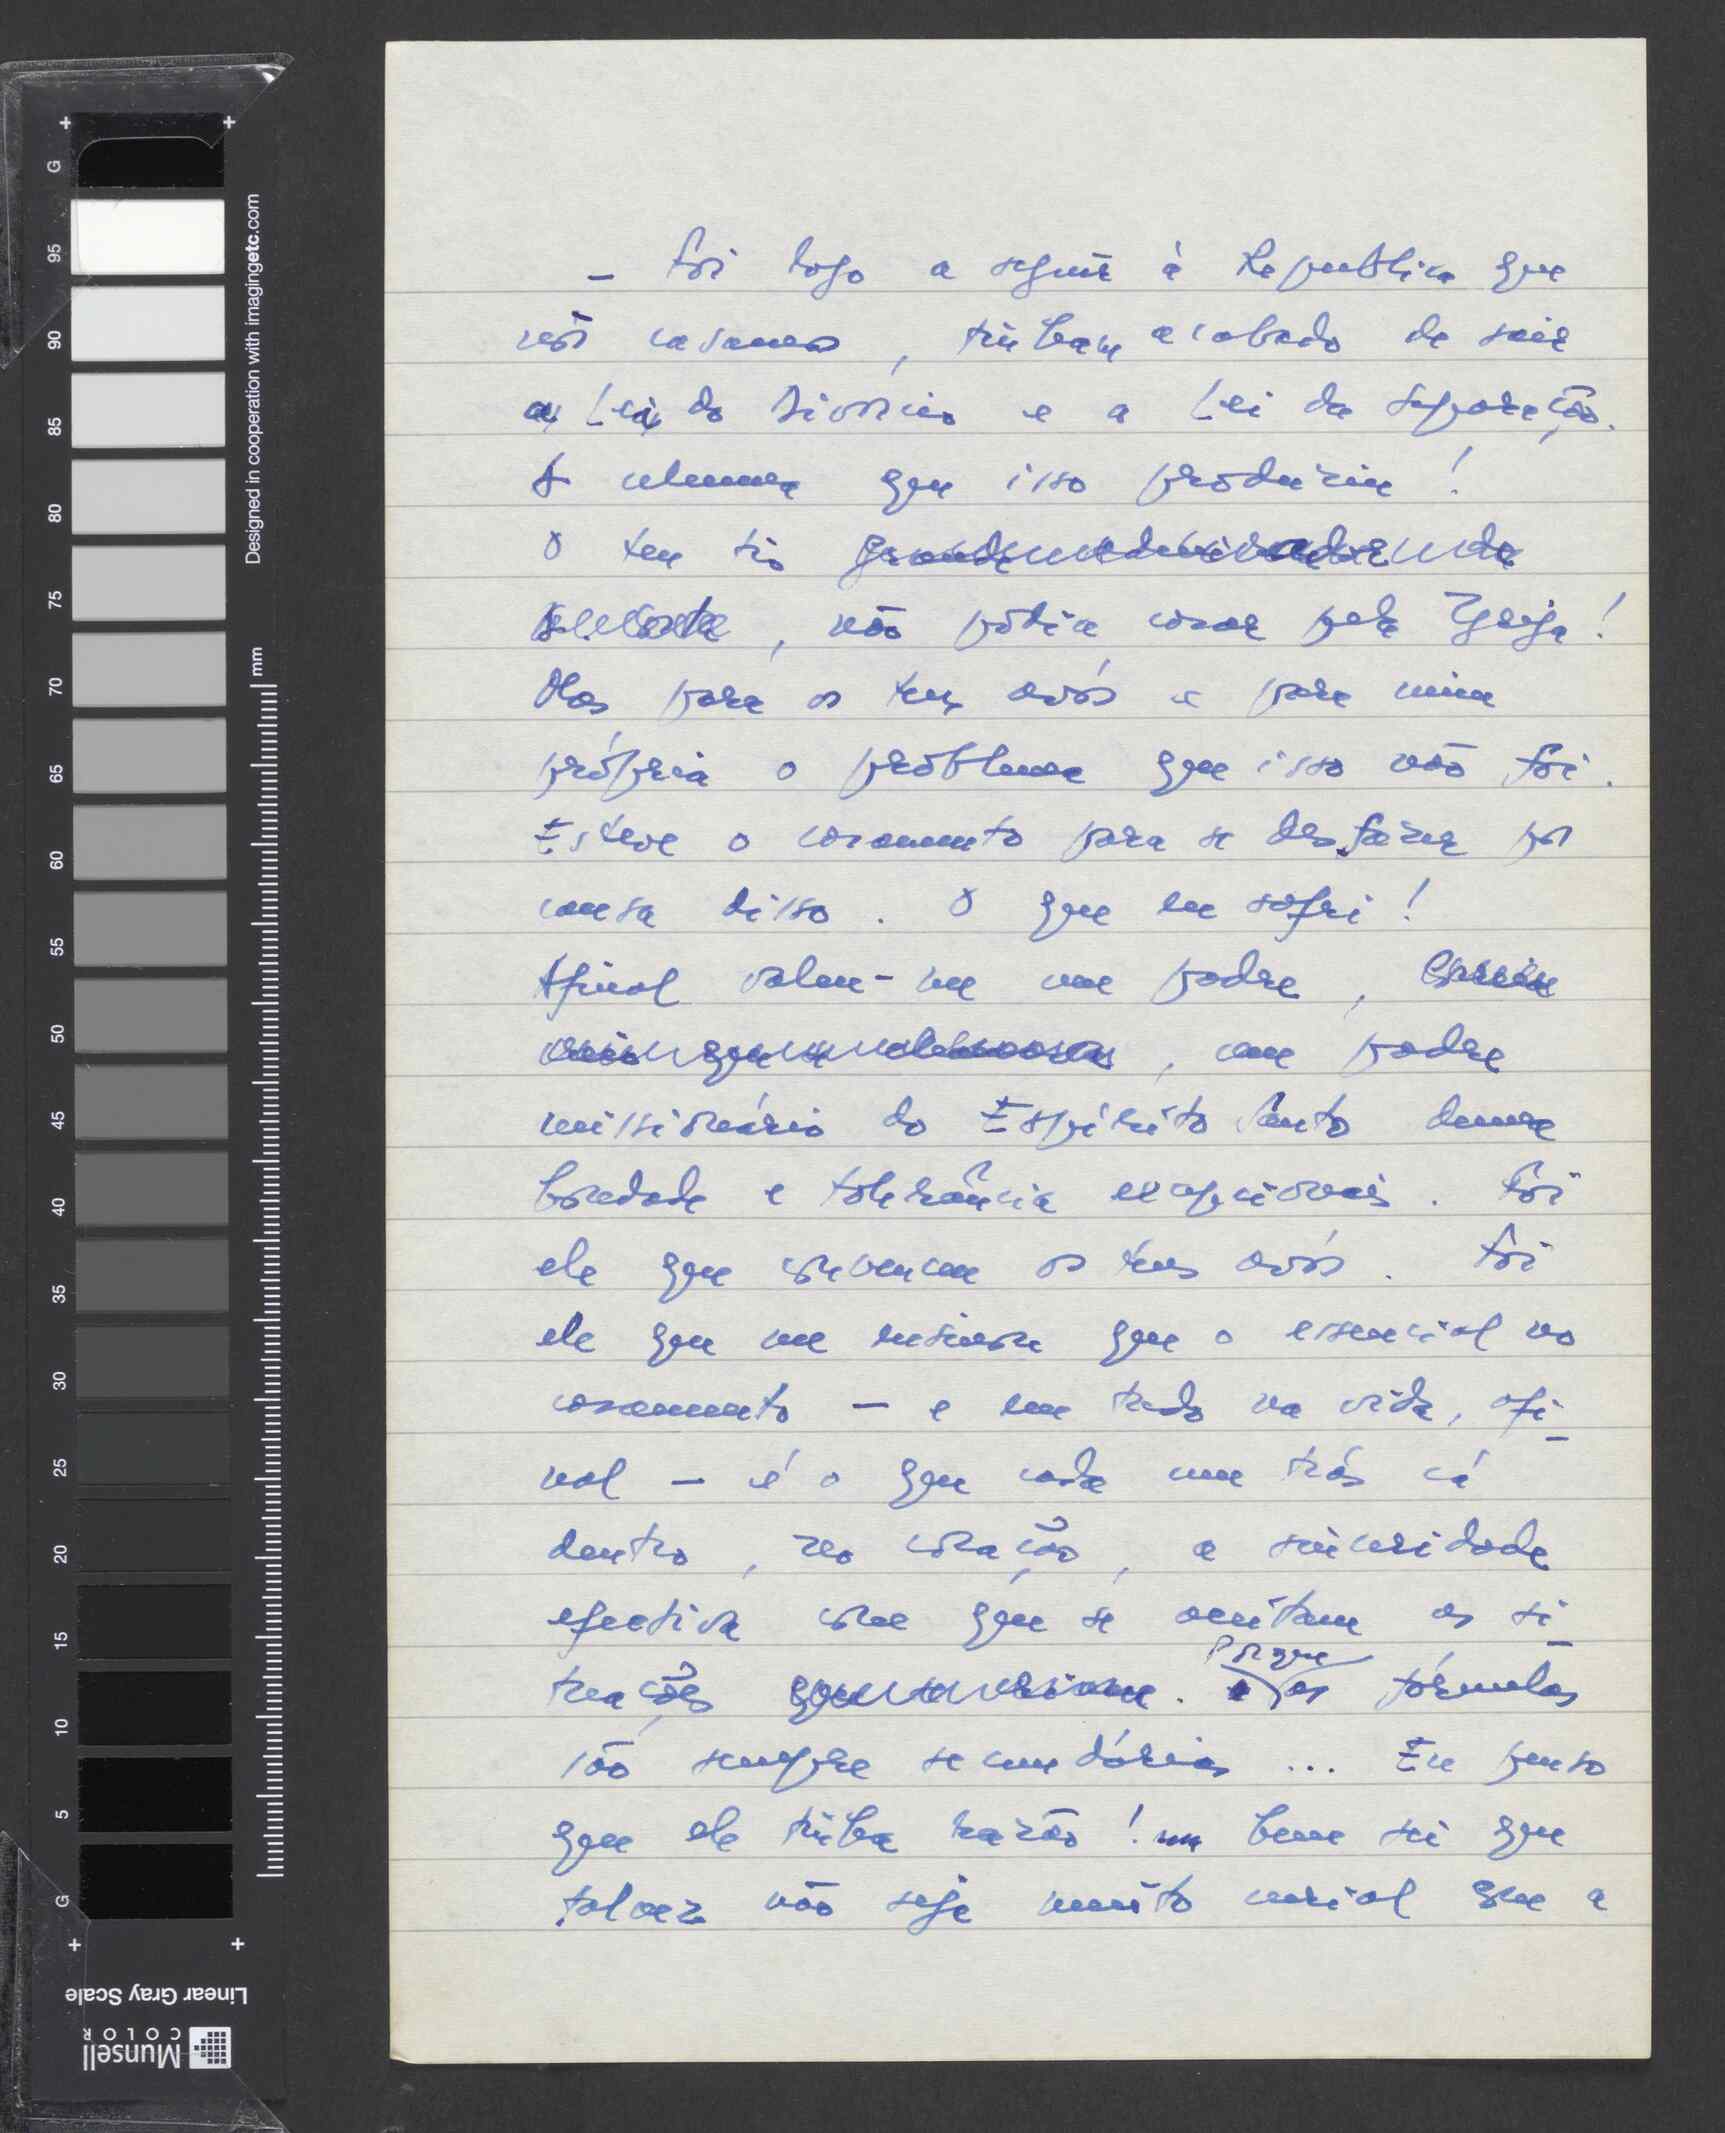 — Foi logo a seguir à Republica que
nós casamos, tinham acabado de sair
a Lei do Divórcio e a Lei da Separação.
A celeuma que isso produziu!
O teu tio
, não pôdia casar pela Igreja!
Mas para os teus avós e para mim
própria o problema que isso não foi.
Esteve o casamento para se desfazer por
causa disso. O que eu sofri!
Afinal valeu-me um padre,
, um padre
missionário do Espírito Santo duma
bondade e tolerância excepcionais. Foi
ele que convenceu os teus avós. Foi
ele que me ensinou que o essencial no
casamento — e em tudo na vida, afi-
nal — é o que cada um trás cá
dentro, no coração, a sinceridade
efectiva com que se aceitam as si-
tuações. Porque as fórmulas
são sempre secundárias ... Eu penso
que ele tinha razão! Bem sei que
talvez não seja muito usual que a
G
95
90
85
80
75
70
65
60
55
50
45
40
35
30
25
20
15
10
5
G
Designed in cooperation with imagingetc.com
mm
Linear Gray Scale
Munsell
COLOR